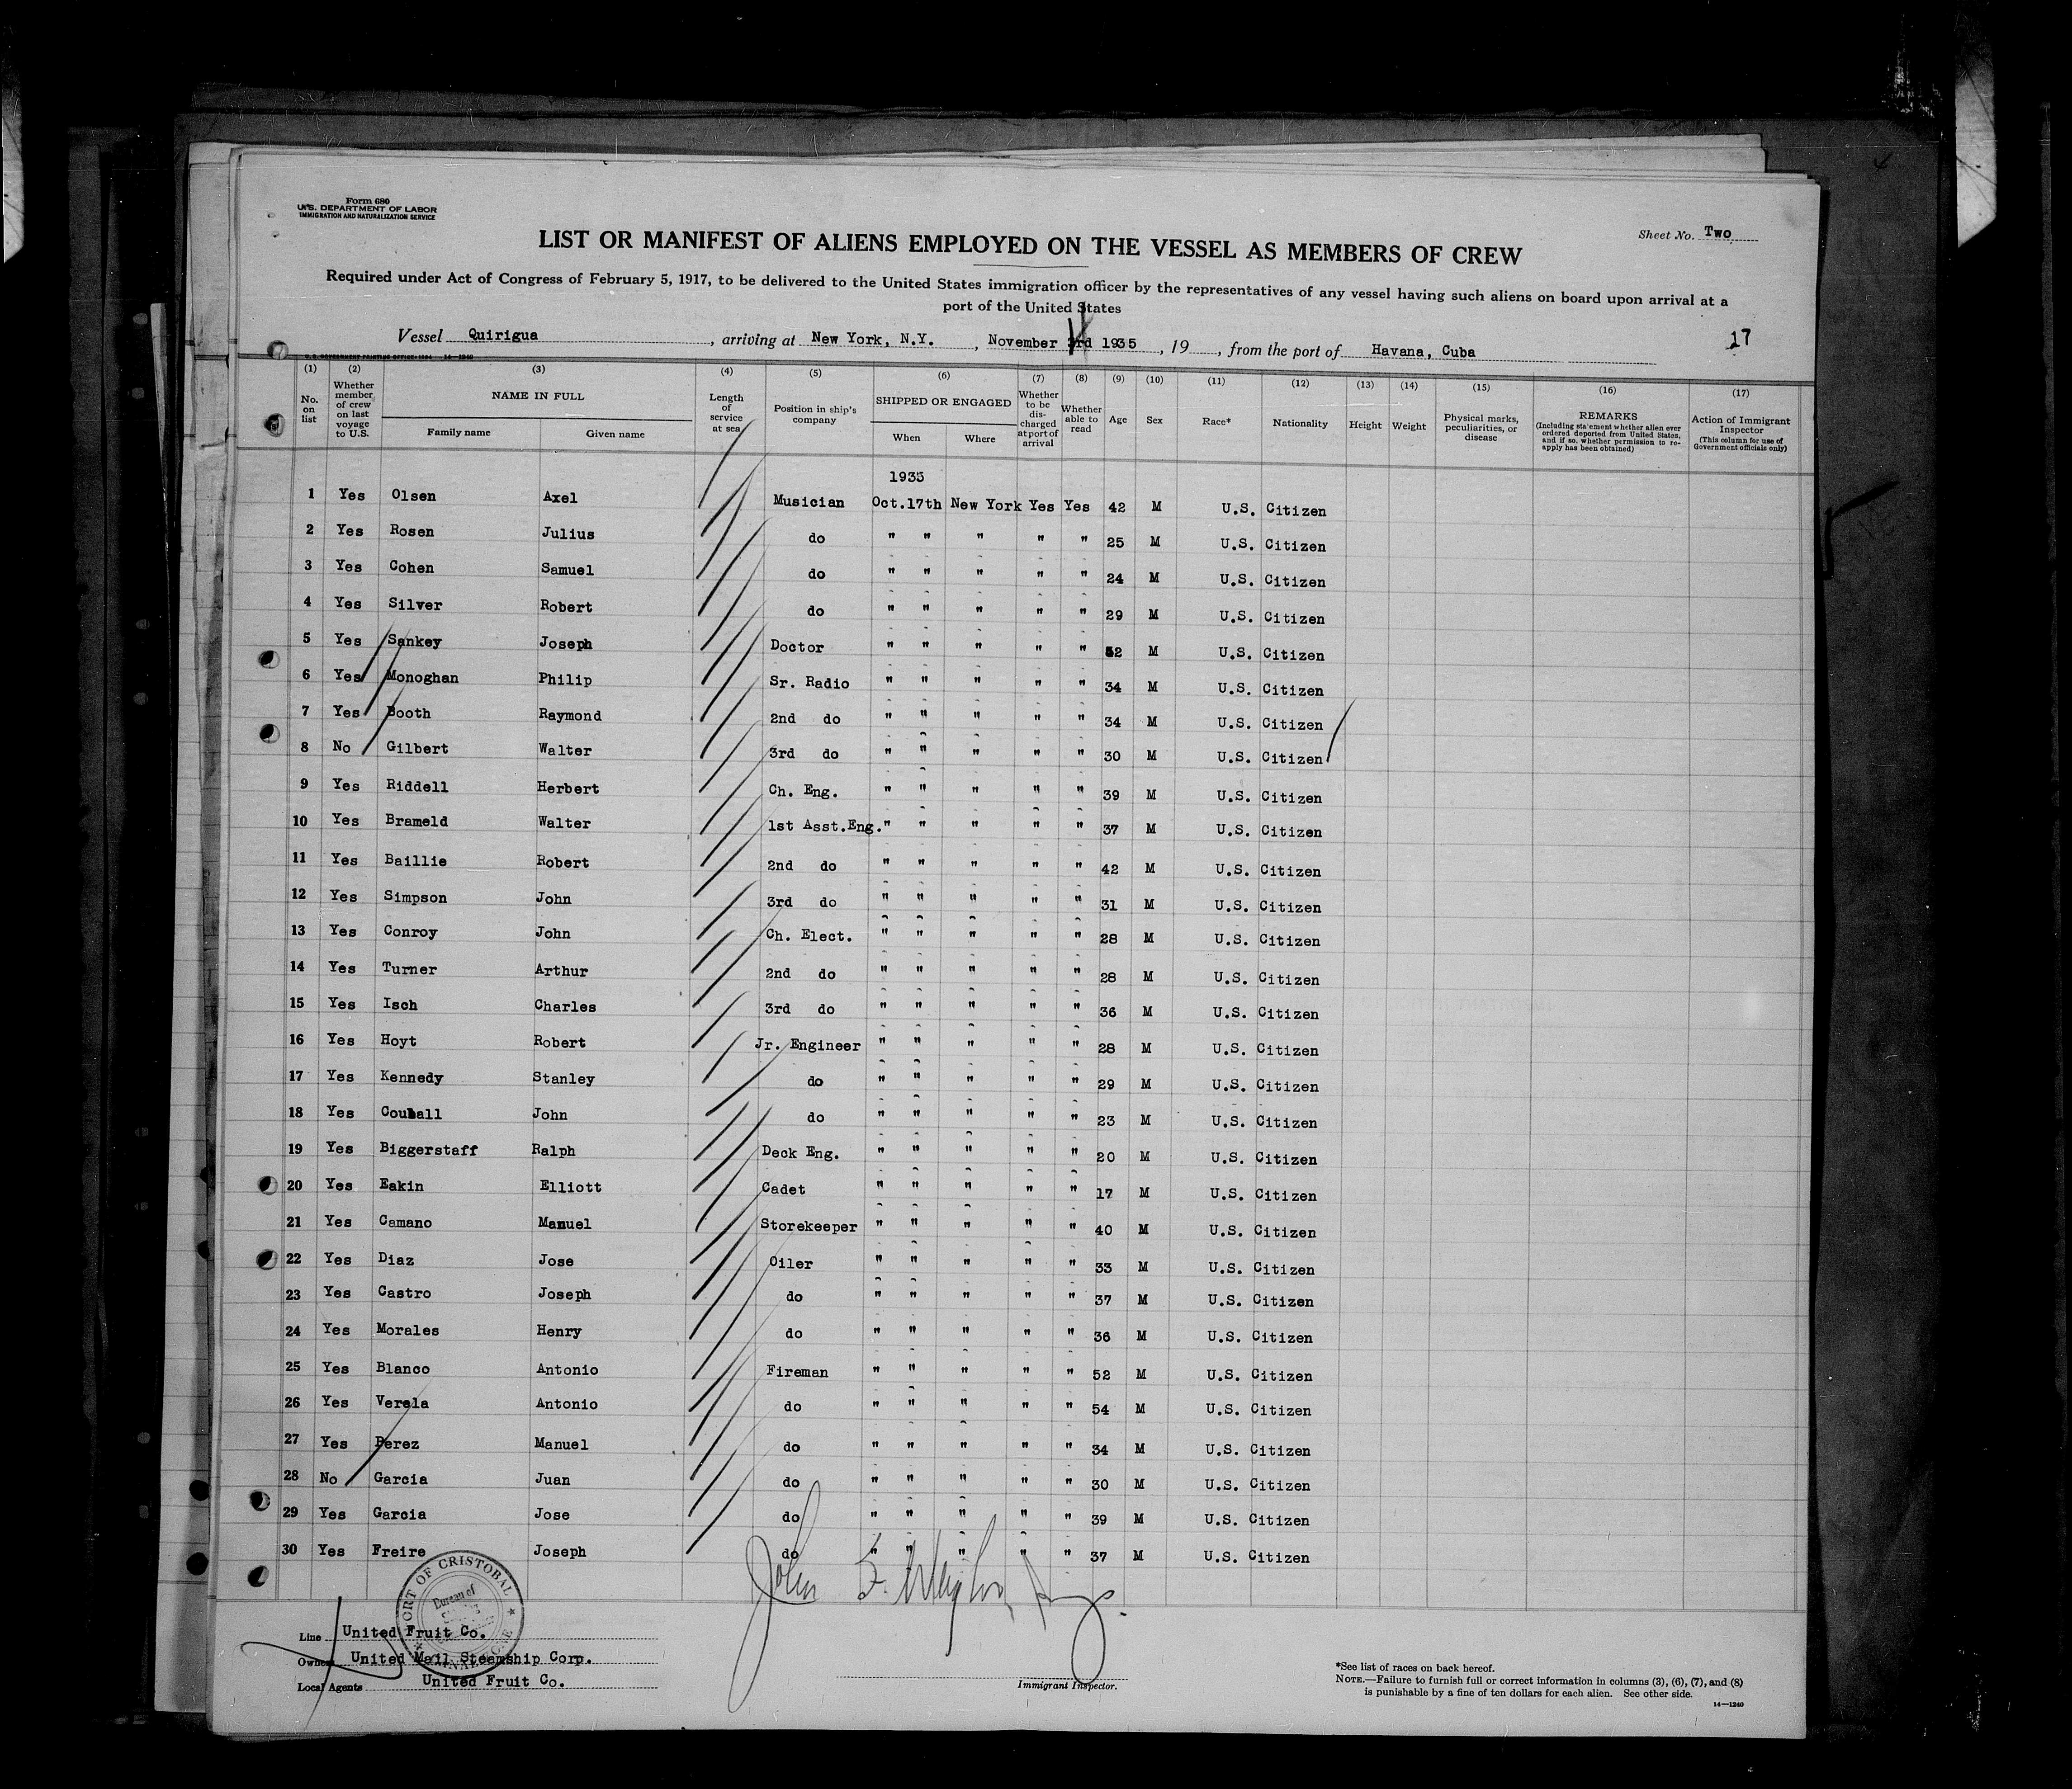 Form 680
U.S. DEPARTMENT OF LABOR
IMMIGRATION AND NATURALIZATION SERVICE
Sheet No. Two
LIST OR MANIFEST OF ALIENS EMPLOYED ON THE VESSEL AS MEMBERS OF CREW
Required under Act of Congress of February 5, 1917, to be delivered to the United States immigration officer by the representatives of any vessel having such aliens on board upon arrival at a
port of the United States
Vessel Quirigua, arriving at New York, N.Y., November 3rd 1935, 19, from the port of Havana, Cuba
17
U. S. GOVERNMENT PRINTING OFFICE: 1934 14-1240
(1) (2) (3) (4) (5) (6) (7) (8) (9) (10) (11) (12) (13) (14) (15) (16) (17)
No. on list
Whether member of crew on last voyage to U.S.
NAME IN FULL
Family name
Given name
Length of service at sea
Position in ship's company
SHIPPED OR ENGAGED
When
Where
Whether to be discharged at port of arrival
Whether able to read
Age
Sex
Race*
Nationality
Height
Weight
Physical marks, peculiarities, or disease
REMARKS
(Including statement whether alien ever ordered deported from United States, and if so, whether permission to reapply has been obtained)
Action of Immigrant Inspector
(This column for use of Government officials only)
1935
1 Yes Olsen Axel Musician Oct.17th New York Yes Yes 42 M U.S. Citizen
2 Yes Rosen Julius do " " " " " 25 M U.S. Citizen
3 Yes Cohen Samuel do " " " " " 24 M U.S. Citizen
4 Yes Silver Robert do " " " " " 29 M U.S. Citizen
5 Yes Sankey Joseph Doctor " " " " " 52 M U.S. Citizen
6 Yes Monoghan Philip Sr. Radio " " " " " 34 M U.S. Citizen
7 Yes Booth Raymond 2nd do " " " " " 34 M U.S. Citizen
8 No Gilbert Walter 3rd do " " " " " 30 M U.S. Citizen
9 Yes Riddell Herbert Ch. Eng. " " " " " 39 M U.S. Citizen
10 Yes Brameld Walter 1st Asst.Eng. " " " " " 37 M U.S. Citizen
11 Yes Baillie Robert 2nd do " " " " " 42 M U.S. Citizen
12 Yes Simpson John 3rd do " " " " " 31 M U.S. Citizen
13 Yes Conroy John Ch. Elect. " " " " " 28 M U.S. Citizen
14 Yes Turner Arthur 2nd do " " " " " 28 M U.S. Citizen
15 Yes Isch Charles 3rd do " " " " " 36 M U.S. Citizen
16 Yes Hoyt Robert Jr. Engineer " " " " " 28 M U.S. Citizen
17 Yes Kennedy Stanley do " " " " " 29 M U.S. Citizen
18 Yes John do " " " " " 23 M U.S. Citizen
19 Yes Biggerstaff Ralph Deck Eng. " " " " " 20 M U.S. Citizen
20 Yes Eakin Elliott Cadet " " " " " 17 M U.S. Citizen
21 Yes Camano Manuel Storekeeper " " " " " 40 M U.S. Citizen
22 Yes Diaz Jose Oiler " " " " " 33 M U.S. Citizen
23 Yes Castro Joseph do " " " " " 37 M U.S. Citizen
24 Yes Morales Henry do " " " " " 36 M U.S. Citizen
25 Yes Blanco Antonio Fireman " " " " " 52 M U.S. Citizen
26 Yes Verela Antonio do " " " " " 54 M U.S. Citizen
27 Yes Perez Manuel do " " " " " 34 M U.S. Citizen
28 No Garcia Juan do " " " " " 30 M U.S. Citizen
29 Yes Garcia Jose do " " " " " 39 M U.S. Citizen
30 Yes Freire Joseph do " " " " " 37 M U.S. Citizen
PORT OF CRISTOBAL
Bureau of
John F.
Line United Fruit Co.
Owners United Mail Steamship Corp.
Local Agents United Fruit Co.
Immigrant Inspector.
*See list of races on back hereof.
NOTE.—Failure to furnish full or correct information in columns (3), (6), (7), and (8)
is punishable by a fine of ten dollars for each alien. See other side.
14—1240